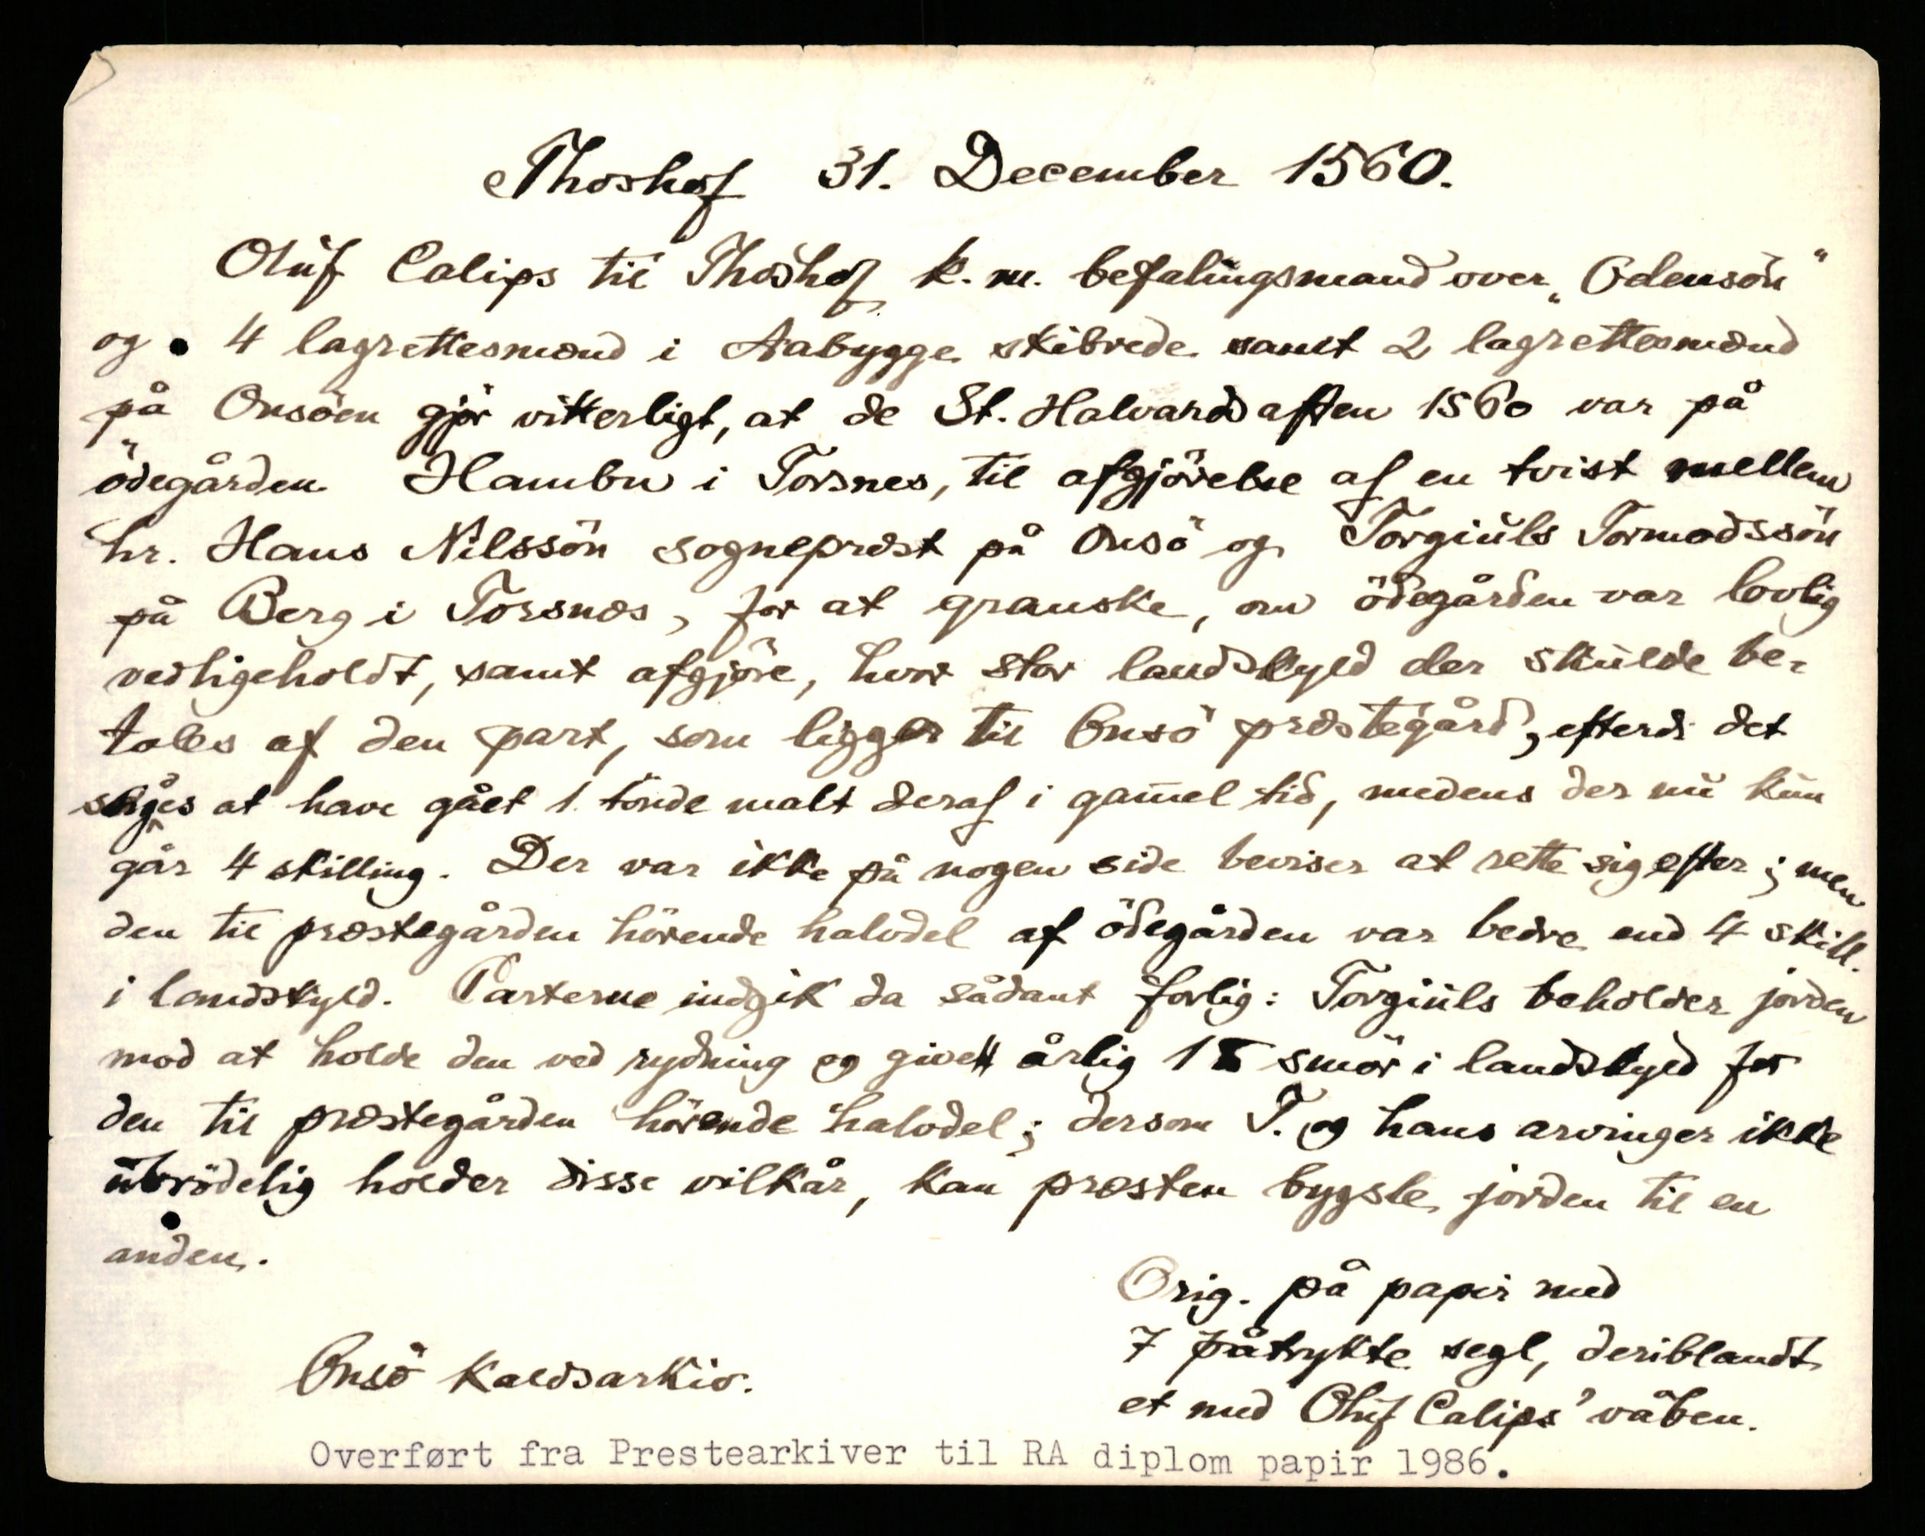 Thoshof 31. December 1560.
Oluf Calips til Thoshof k. m. befalingsmand over „Odensön”
og 4 lagrettesmænd i Aabygge skibrede samt 2 lagrettesmænd
på Onsöen gjör vitterligt, at de St. Halvards aften 1560 var på
ödegården Hambu i Torsnes, til afgjörelse af en tvist mellem
hr. Hans Nilssön sognepræst på Onsö og Torgiuls Tormodssön
på Berg i Torsnæs, for at granske, om ödegården var lovlig
vedligeholdt, samt afgjöre, hvor stor landskyld der skulde be-
tales af den part, som ligger til Onsö præstegård, efterdi det
siges at have gået 1 tönde malt deraf i gam̄el tid, medens der nu kun
går 4 skilling. Der var ikke på nogen side beviser at rette sig efter; men
den til præstegården hörende halvdel af ödegården var bedre end 4 skill.
i landskyld. Parterne indgik da sådant forlig: Torgiuls beholder jorden
mod at holde den ved rydning og give årlig 1 smör i landskyld for
den til præstegården hörende halvdel; dersom T. og hans arvinger ikke
ubrödelig holder disse vilkår, kan præsten bygsle jorden til en
anden.
Orig. på papir med
7 påtrykte segl, deriblandt
et med Oluf Calips' våben.
Onsö Kaldsarkiv.
Overført fra Prestearkiver til RA diplom papir 1986.